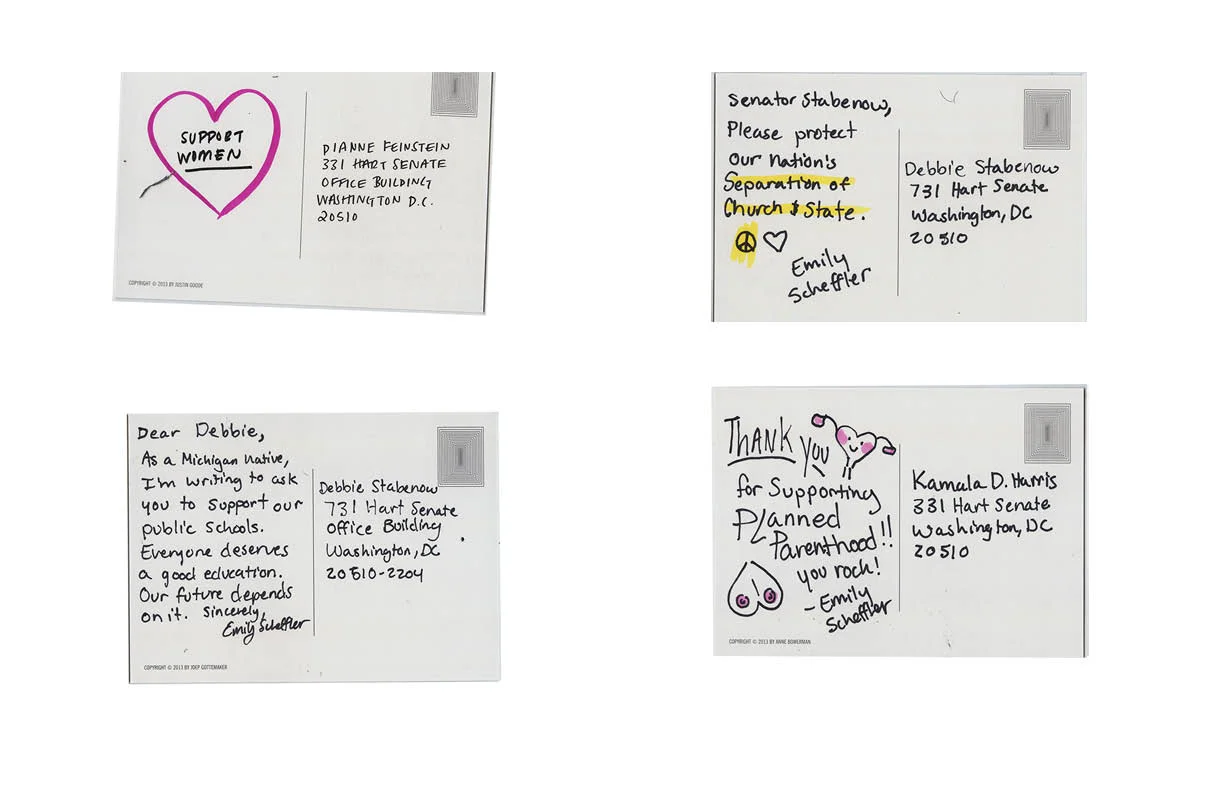 SUPPORT
WOMEN
DIANNE FEINSTEIN
331 HART SENATE
OFFICE BUILDING
WASHINGTON D.C.
20510
COPYRIGHT © 2013 BY JUSTIN GOODE
Senator Stabenow,
Please protect
our nation's
Separation of
Church & State.
Emily
Scheffler
Debbie Stabenow
731 Hart Senate
Washington, DC
20510
Dear Debbie,
As a Michigan native,
I'm writing to ask
you to support our
public schools.
Everyone deserves
a good education.
Our future depends
on it. Sincerely,
Emily Scheffler
Debbie Stabenow
731 Hart Senate
Office Building
Washington, DC
20510-2204
COPYRIGHT © 2013 BY JOEP GOTTEMAKER
THANK you
for Supporting
Planned
Parenthood!!
you rock!
- Emily
Scheffler
Kamala D. Harris
331 Hart Senate
Washington, DC
20510
COPYRIGHT © 2013 BY ANNE BOWERMAN